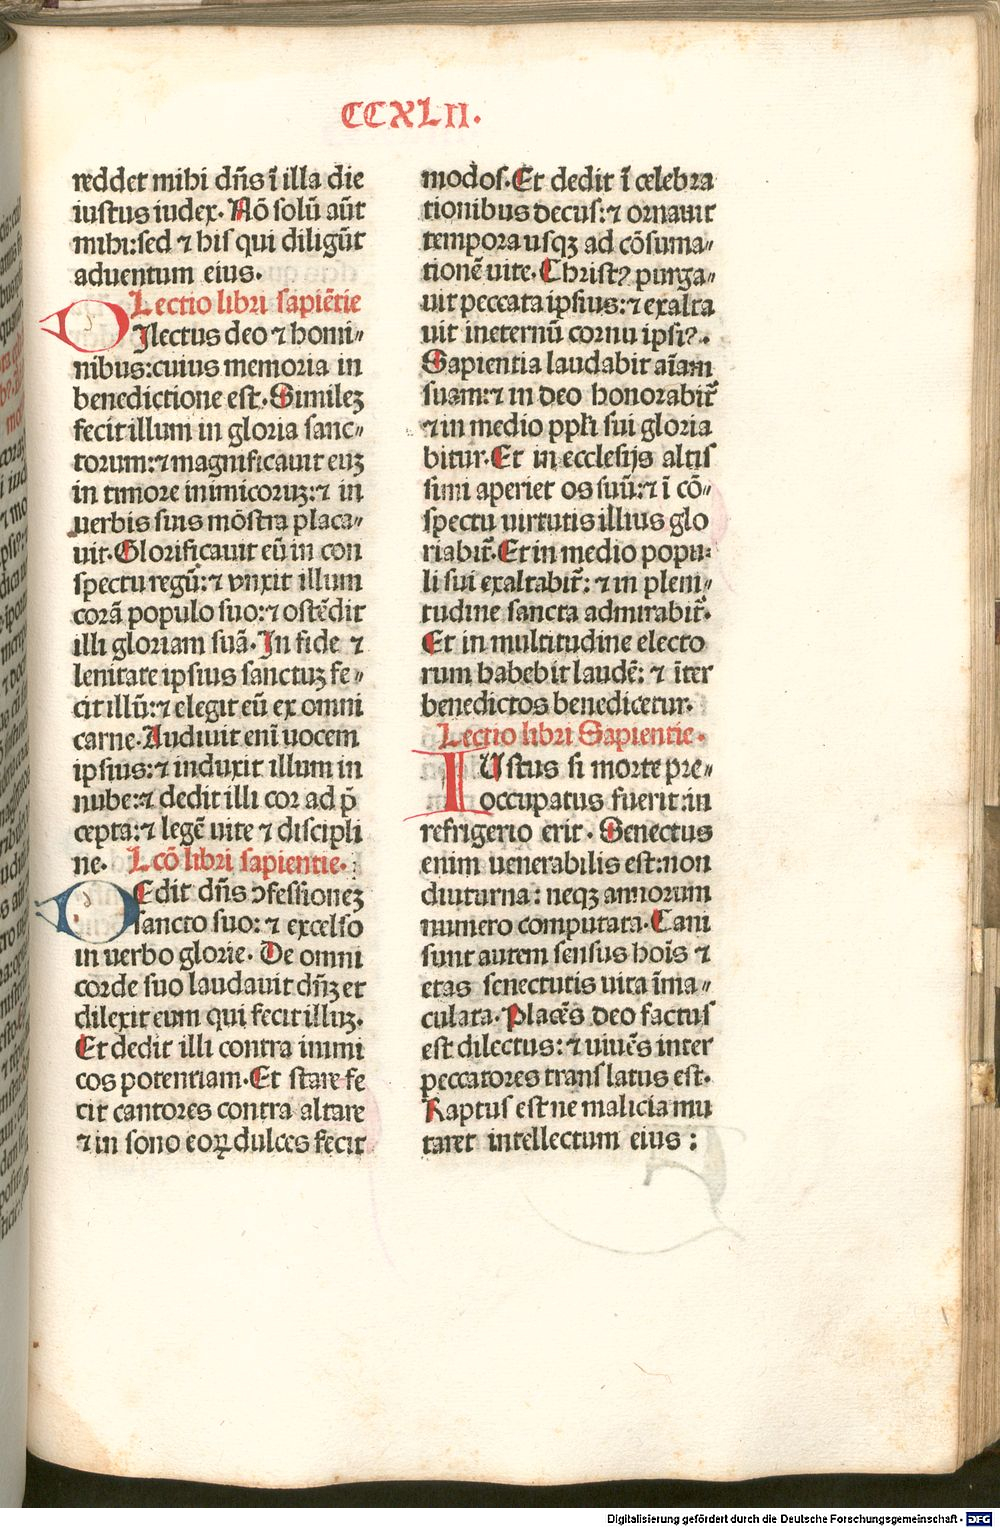 CCXLII.
reddet mihi dn̄s ī illa die
iustus iudex. Nō solū aūt
mihi:sed ⁊ his qui diligūt
aduentum eius.
Lectio libri sapiētie
DIlectus deo ⁊ homi⸗
nibus:cuius memoria in
benedictione est. Similez
fecit illum in gloria sanc⸗
torum:⁊ magnificauit euz
in timore inimicoruz:⁊ in
uerbis suis mōstra placa⸗
uit. Glorificauit eū in con
spectu regū:⁊ vnxit illum
corā populo suo:⁊ ostēdit
illi gloriam suā. In fide ⁊
lenitate ipsius sanctuz fe⸗
cit illū:⁊ elegit eū ex omni
carne. Audiuit enī uocem
ipsius:⁊ induxit illum in
nube:⁊ dedit illi cor ad p̄
cepta:⁊ legē uite ⁊ discipli
ne. Lcō libri sapientie.
DEdit dn̄s ↄfessionez
sancto suo:⁊ excelso
in uerbo glorie. De omni
corde suo laudauit dn̄z et
dilexit eum qui fecit illuz.
Et dedit illi contra inimi
cos potentiam. Et stare fe
cit cantores contra altare
⁊ in sono eoꝝ dulces fecit
modos. Et dedit ī celebra
tionibus decus:⁊ ornauit
tempora usqꝫ ad cōsuma⸗
tionē uite. Christꝰ purga⸗
uit peccata ipsius:⁊ exalta
uit ineternū cornu ipsiꝰ.
Sapientia laudabit aīam
suam:⁊ in deo honorabit̄
⁊ in medio ppłi sui gloria
bitur. Et in ecclesijs altis
simi aperiet os suū:⁊ ī cō⸗
spectu uirtutis illius glo
riabit̄. Et in medio popu⸗
li sui exaltabit̄:⁊ in pleni⸗
tudine sancta admirabit̄.
Et in multitudine electo
rum habebit laudē:⁊ īter
benedictos benedicetur.
Lectio libri Sapientie.
IUstus si morte pre⸗
occupatus fuerit:in
refrigerio erit. Senectus
enim uenerabilis est:non
diuturna: neqꝫ annorum
numero computata. Cani
sunt autem sensus hoīs ⁊
etas senectutis uita īma⸗
culata. Placēs deo factus
est dilectus:⁊ uiuēs inter
peccatores translatus est.
Raptus est ne malicia mu
taret intellectum eius :
Digitalisierung gefördert durch die Deutsche Forschungsgemeinschaft - DFG